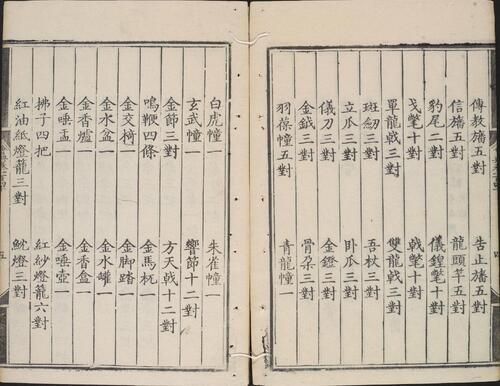 傳教旛五對 告止旛五對
信旛五對 龍頭竿五對
豹尾二對 儀鍠氅十對
戈氅十對 戟氅十對
單龍戟三對 雙龍戟三對
班劒三對 吾杖三對
立瓜三對 卧瓜三對
儀刀三對 金鐙三對
金鉞三對 骨朶三對
羽葆幢五對 青龍幢一
白虎幢一 朱雀幢一
玄武幢一 響節十二對
金節三對 方天戟十二對
鳴鞭四條 金馬杌一
金交椅一 金脚踏一
金水盆一 金水罐一
金香爐一 金香盒一
金唾盂一 金唾壺一
拂子四把 紅紗燈籠六對
紅油紙燈籠三對 魫燈三對
五